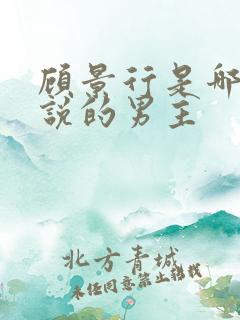 顾景行是哪
说的男主
北方青城
未经同意禁止转载